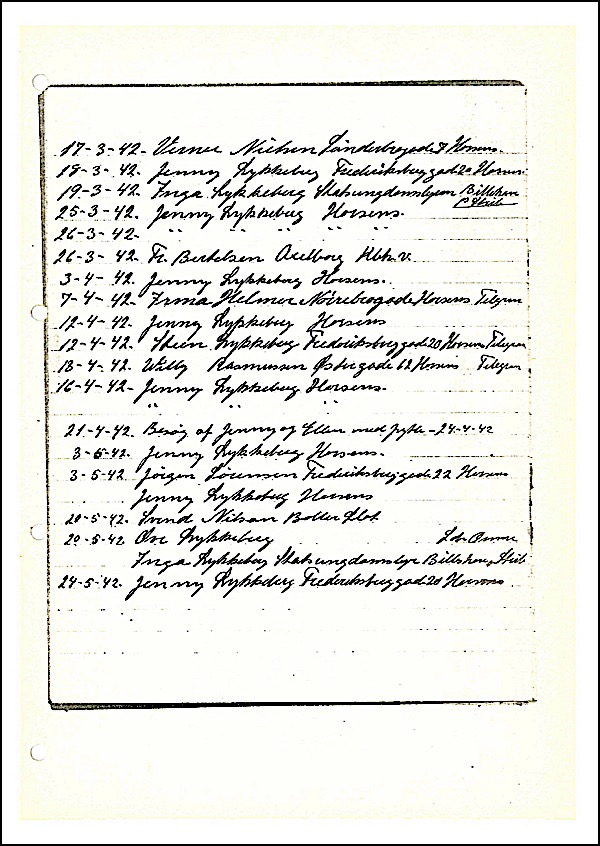 17-3-42. Verner Nielsen Sönderbrogade 7 Horsens.
18-3-42. Jenny Lykkeberg Frederiksberggade 20 Horsens
19-3-42. Inga Lykkeberg Statsungdomslejren Billeshave
P. Strib
25-3-42. Jenny Lykkeberg Horsens.
26-3-42. " " " " "
26-3-42. Fr. Bertelsen Axelborg Kbh. V.
3-4-42. Jenny Lykkeberg Horsens.
7-4-42. Irma Helmer Nörrebrogade Horsens Telegram
12-4-42. Jenny Lykkeberg Horsens
12-4-42. Lykkeberg Frederiksberggade 20 Horsens Telegram
13-4-42. Willy Rasmussen Østergade 62 Horsens Telegram
16-4-42- Jenny Lykkeberg Horsens.
" " "
21-4-42. Besøg af Jenny og Ellen med - 24-4-42
3-5-42. Jenny Lykkeberg Horsens.
3-5-42 Jörgen Sörensen Frederiksberggade 22 Horsens
Jenny Lykkeberg Horsens
20-5-42. Svend Nilsen Boller Slot
20-5-42 Ove Lykkeberg
Inga Lykkeberg Statsungdomslejr Billeshave, Strib
24-5-42. Jenny Lykkeberg Frederiksberggade 20 Horsens